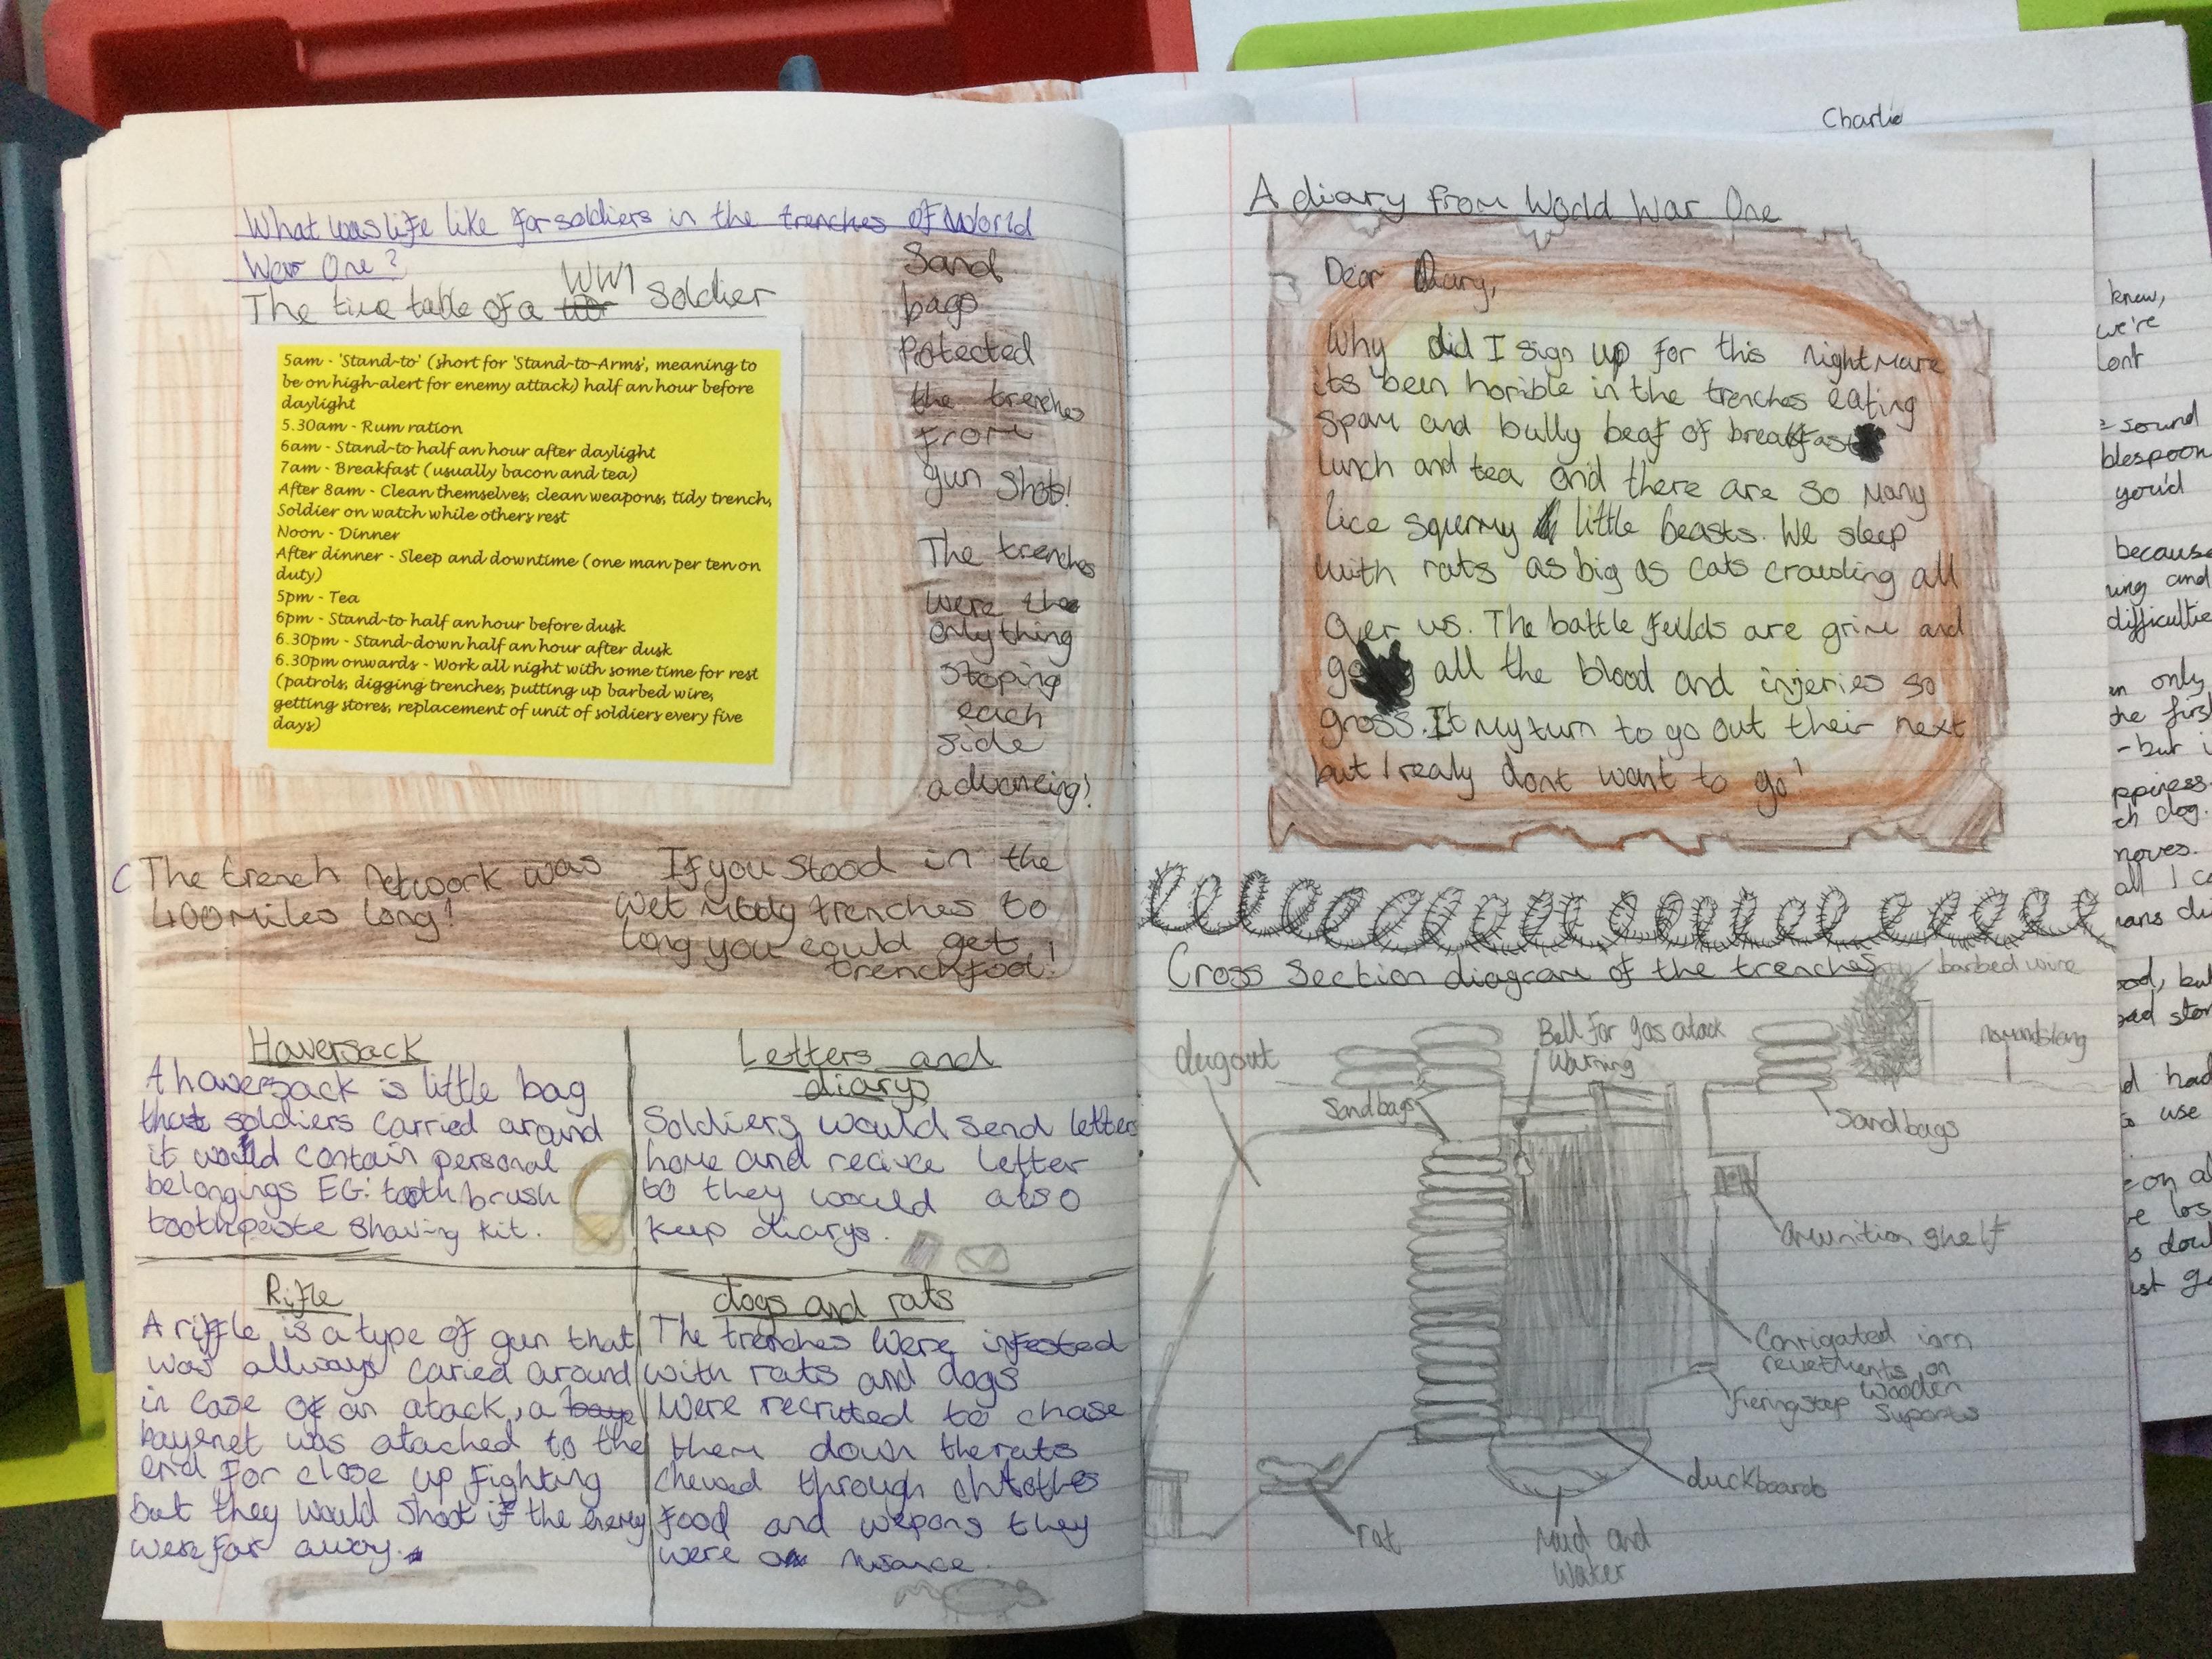 What was life like for soldiers in the trenches of World
War One?
The time table of a WW1 soldier
5am - 'Stand-to' (short for 'Stand-to-Arms', meaning to
be on high-alert for enemy attack) half an hour before
daylight
5.30am - Rum ration
6am - Stand-to half an hour after daylight
7am - Breakfast (usually bacon and tea)
After 8am - Clean themselves, clean weapons, tidy trench,
Soldier on watch while others rest
Noon - Dinner
After dinner - Sleep and downtime (one man per ten on
duty)
5pm - Tea
6pm - Stand-to half an hour before dusk
6.30pm - Stand-down half an hour after dusk
6.30pm onwards - Work all night with some time for rest
(patrols, digging trenches, putting up barbed wire,
getting stores, replacement of unit of soldiers every five
days)
Sand
bags
Protected
the trenches
from
gun shots!
The trenches
were the
only thing
stoping
each
side
advancing!
The trench network was
400 miles long!
If you stood in the
wet muddy trenches to
long you could get
trenchfoot!
Haversack
A haversack is little bag
that soldiers carried around
it would contain personal
belongings EG: tooth brush
toothpaste shaving kit.
Letters and
diarys
Soldiers would send letters
home and recive letter
to they would also
keep diarys.
Rifle
A riffle is a type of gun that
was allways caried around
in case of an atack, a baye
bayenet was atached to the
end for close up fighting
but they would shoot if the enemy
were far away.
dogs and rats
The trenches were infested
with rats and dogs
were recruted to chase
them down the rats
chewed through
food and wepons they
were a nusance.
Charlie
A diary from World War One
Dear Diary,
Why did I sign up for this nightmare
its been horrible in the trenches eating
spam and bully beaf of breakfast
lunch and tea and there are so many
lice squrmy little beasts. We sleep
with rats as big as cats crawling all
over us. The battle feilds are grim and
gory all the blood and injeries so
gross. It my turn to go out their next
but I realy dont want to go!
Cross Section diagram of the trenches
barbed wire
dugout
Bell for gas atack
Warning
nomansland
Sandbags
Sandbags
amunition shelf
Corrigated iorn
revetments on
wooden
suports
Fieringstep
duckboards
rat
Mud and
Water
knew,
we're
sound
blespoon
you'd
because
and
difficultie
only
the first
-but
ppiness.
dog.
moves.
all I
but
had
use
on